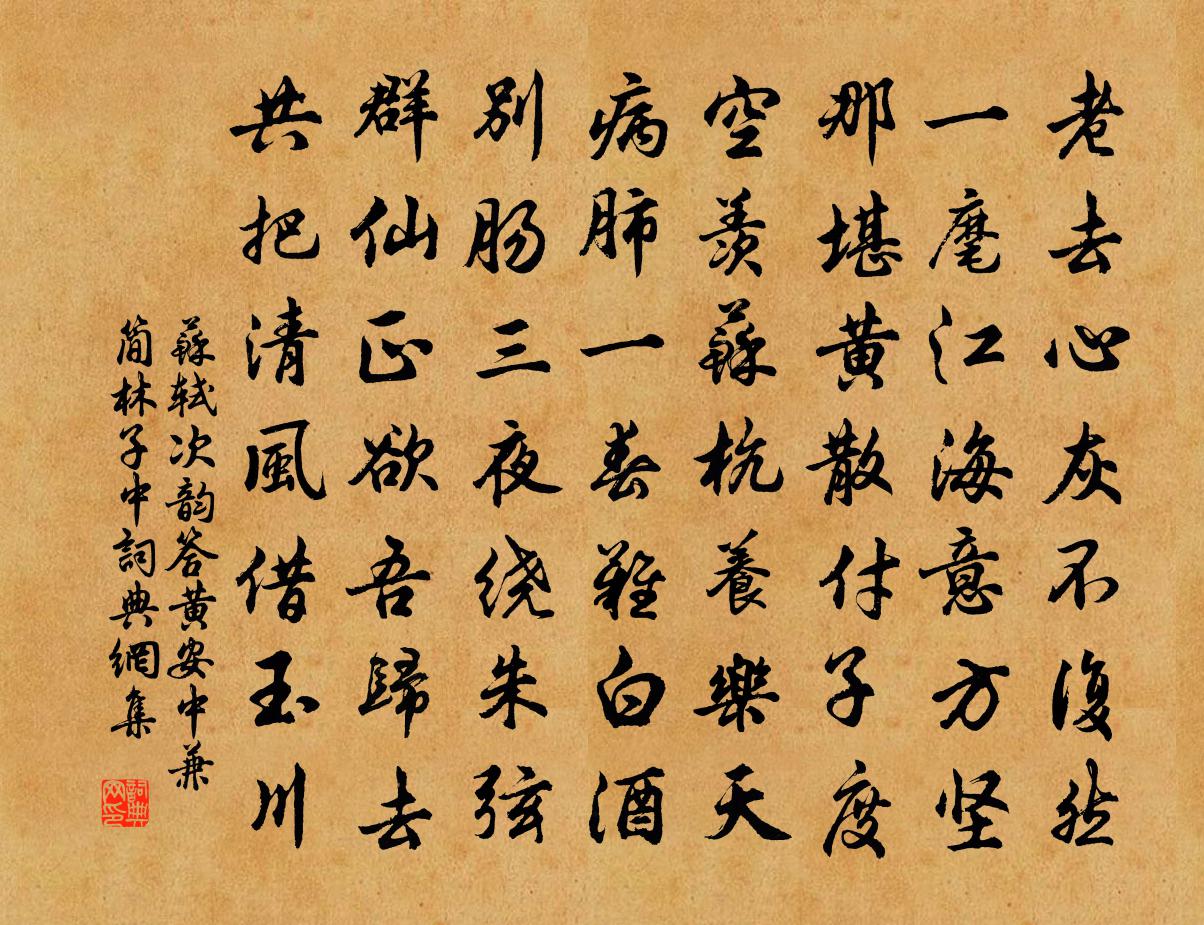 老去心灰不復然
一麾江海意方坚
那堪黄散付子度
空羨蘇杭養樂天
病肺一春難白酒
别肠三夜绕朱弦
群仙正欲吾歸去
共把清風借玉川
蘇轼次韵答黄安中兼
簡林子中詞典網集
詞典
网印